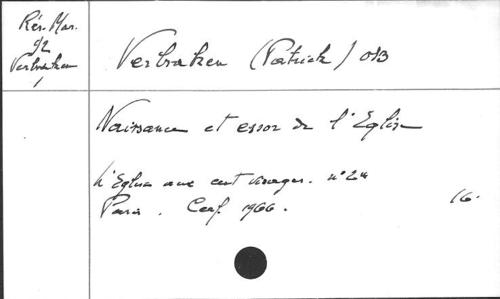 Rés. Mar.
92
Verbraken
1
Verbraken (Patrick) OSB
Naissance et essor de l'Eglise
L'Eglise aux cent visages. n°24
Paris. Cerf. 1966.
16.